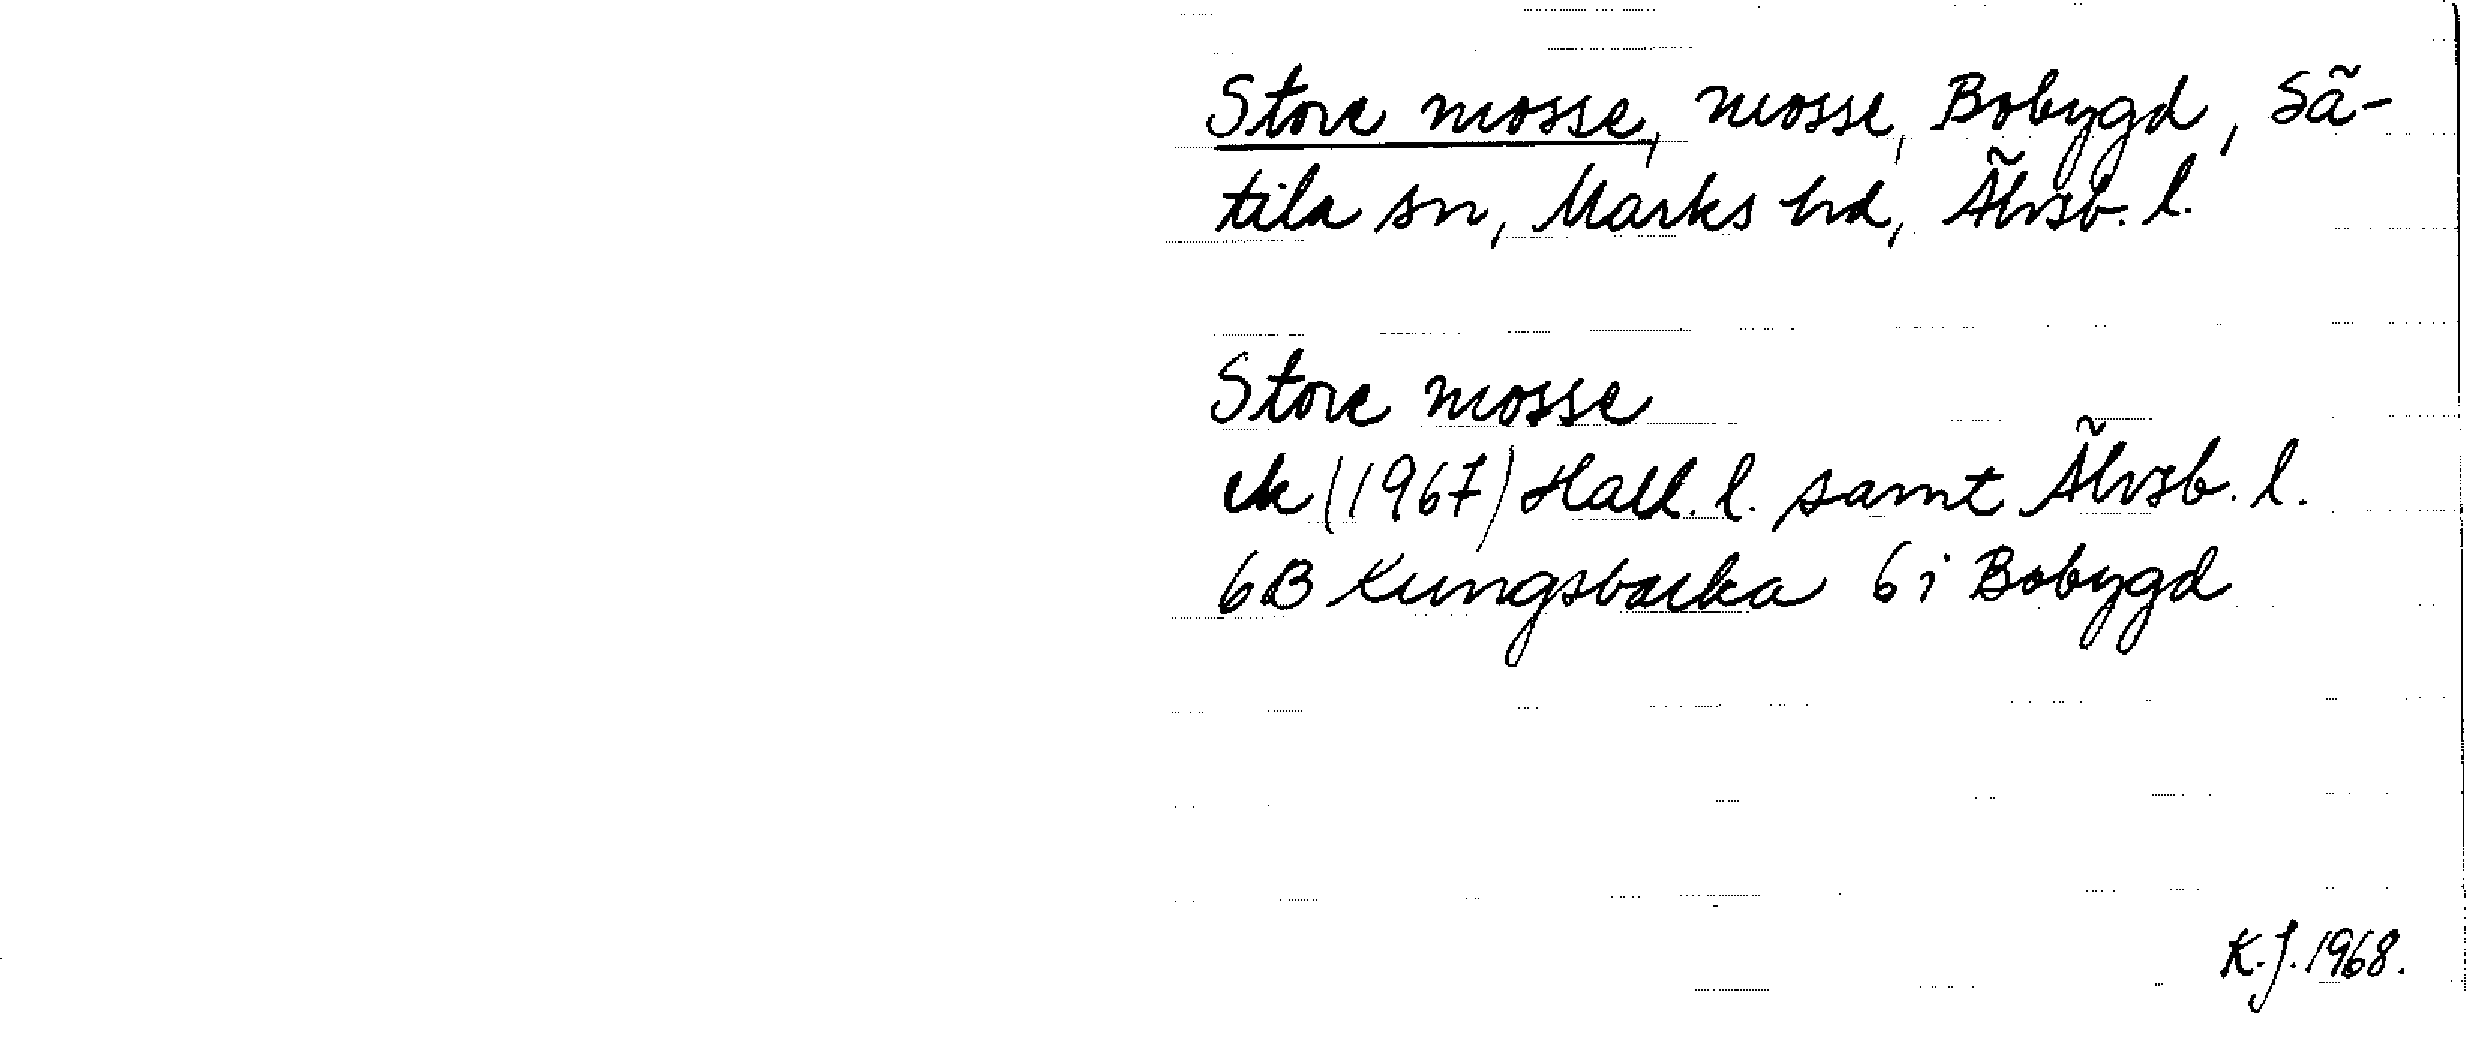 Store mosse, mosse, Bobygd, Sä-
tila sn, Marks hd, Älvsb. l.
Store mosse
ek (1967) Hall. l. samt Älvsb. l.
6B Kungsbacka 6i Bobygd
K.J. 1968.